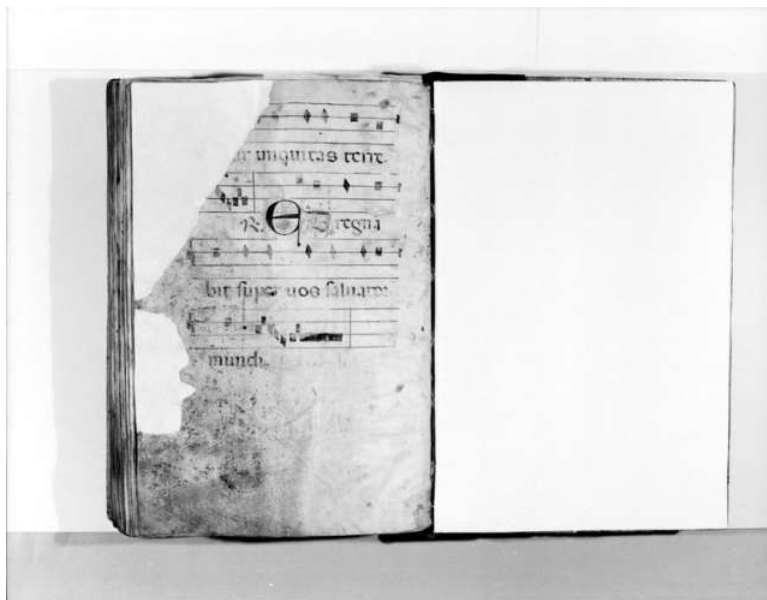 iniquitas terre.
℟. Et regna
bit super uos saluator
mundi.